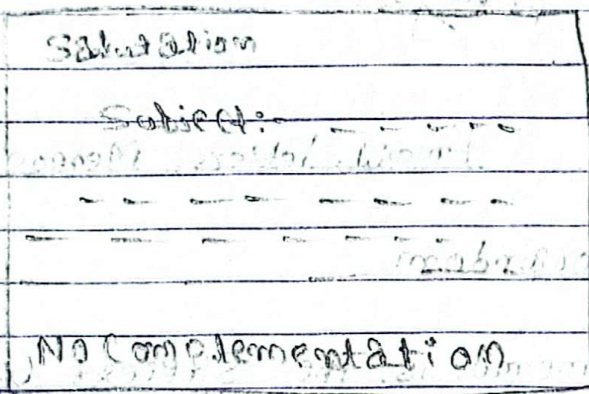 Salutation
Subject:- - - - - -
- - - - - - - -
- - - - - - -
No Complementation